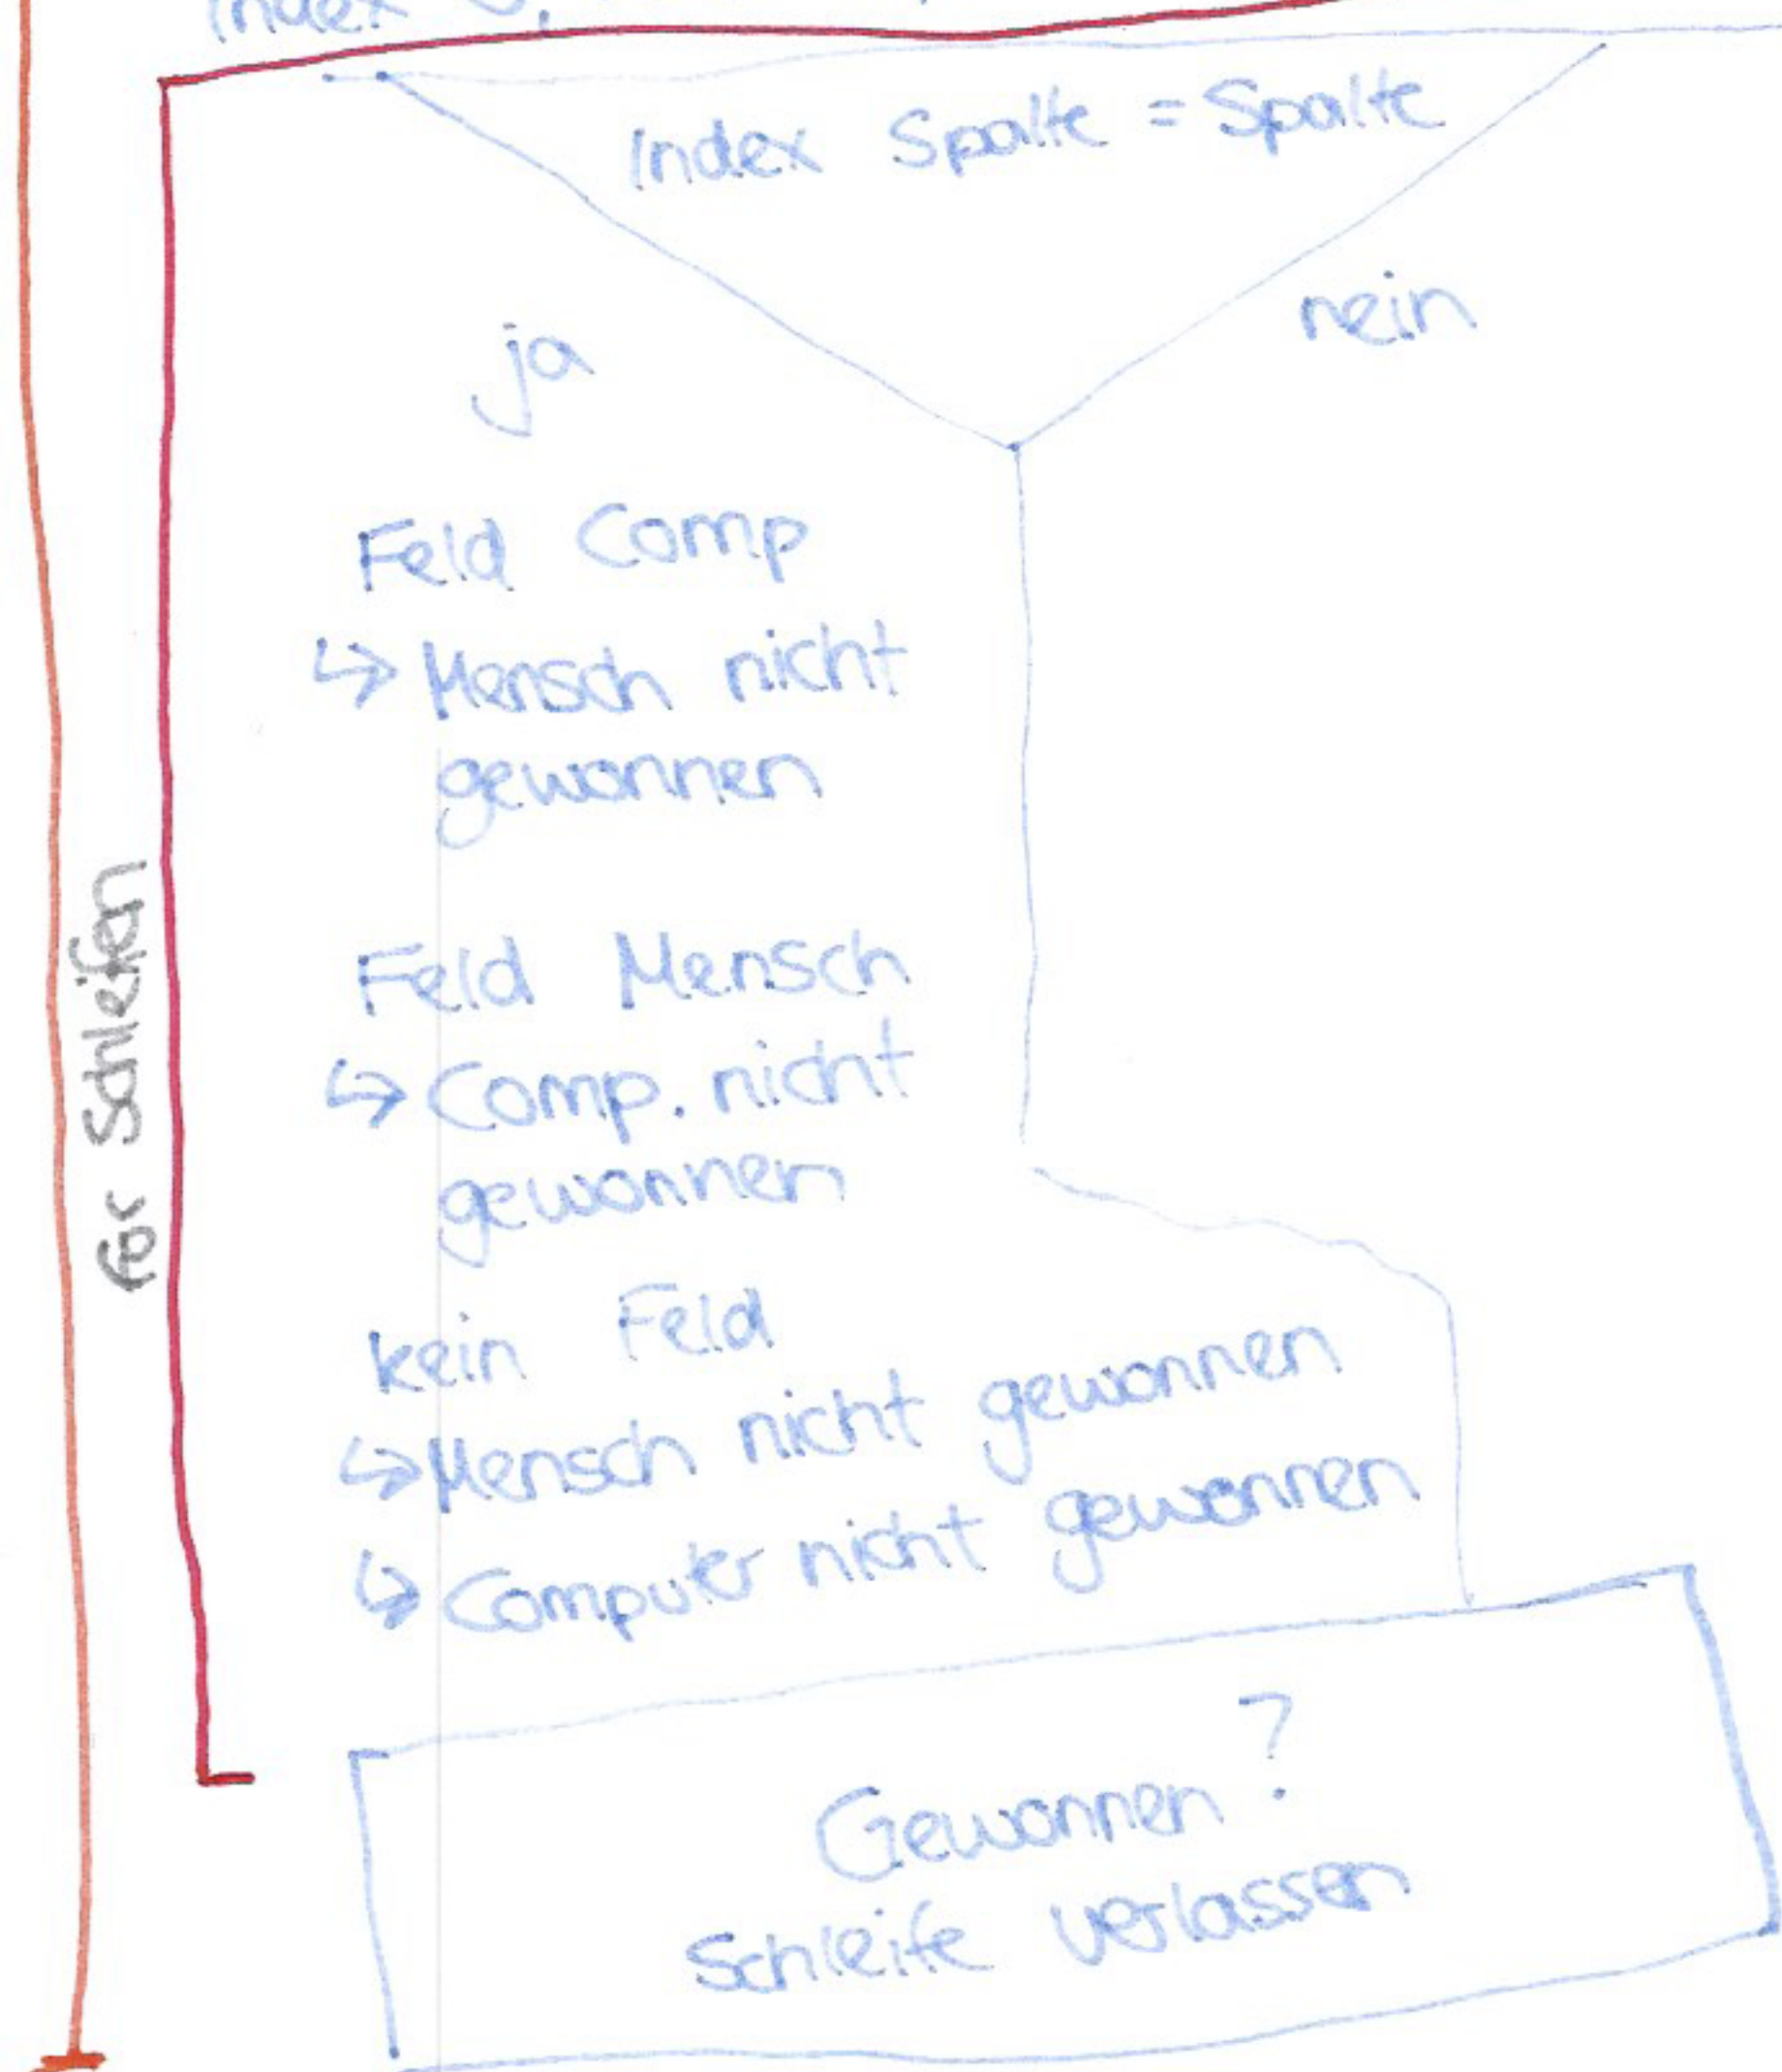 Index
Index Spalte = Spalte
ja
nein
Feld Comp
↳ Mensch nicht
gewonnen
Feld Mensch
↳ Comp. nicht
gewonnen
kein Feld
↳ Mensch nicht gewonnen
↳ Computer nicht gewonnen
for Schleifen
Gewonnen?
Schleife verlassen